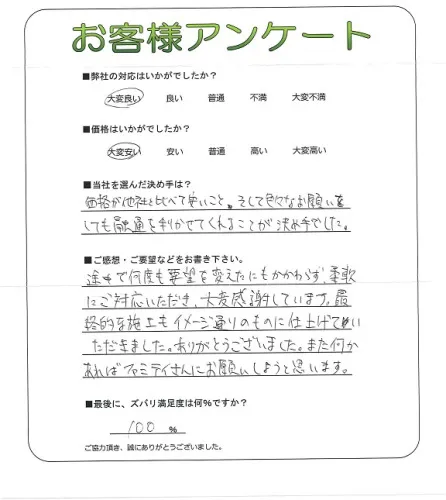 お客様アンケート
■弊社の対応はいかがでしたか？
大変良い 良い 普通 不満 大変不満
■価格はいかがでしたか？
大変安い 安い 普通 高い 大変高い
■当社を選んだ決め手は？
価格が他社と比べて安いこと。そして色々なお願いを
しても融通を利かせてくれることが決め手でした。
■ご感想・ご要望などをお書き下さい。
途中で何度も要望を変えたにもかかわらず、柔軟
にご対応いただき、大変感謝しています。最
終的な施工もイメージ通りのものに仕上げて
いただきました。ありがとうございました。また何か
あればファミテイさんにお願いしようと思います。
■最後に、ズバリ満足度は何%ですか？
100 %
ご協力頂き、誠にありがとうございました。